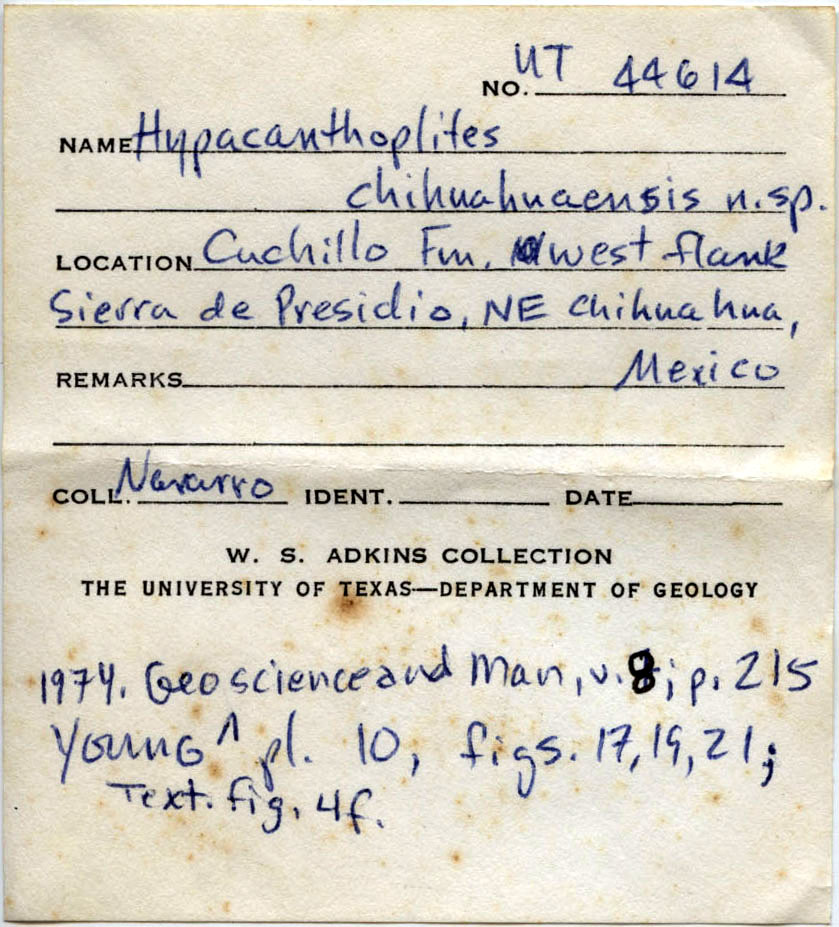 NO. UT 44614
NAME Hypacanthoplites
chihuahuaensis n.sp.
LOCATION Cuchillo Fm, west flank
Sierra de Presidio, NE Chihuahua,
REMARKS Mexico
COLL. Navarro IDENT. DATE
W. S. ADKINS COLLECTION
THE UNIVERSITY OF TEXAS—DEPARTMENT OF GEOLOGY
1974. Geoscience and Man, v. 8; p. 215
YOUNG ^ pl. 10, figs. 17, 19, 21;
Text. fig. 4f.